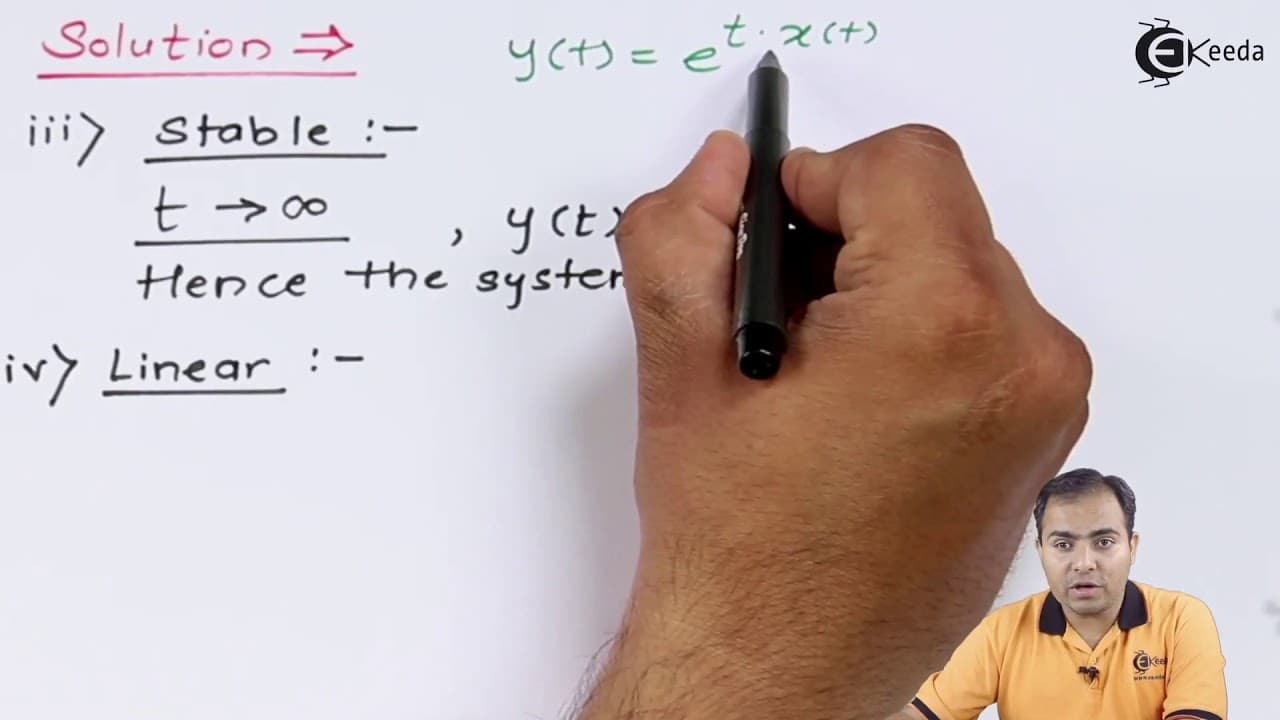 Solution ⇒ y(t) = e^{t · x(t)}
Ekeeda
iii) Stable :-
t → ∞ , y(t)
Hence the system
iv) Linear :-
Ekeeda